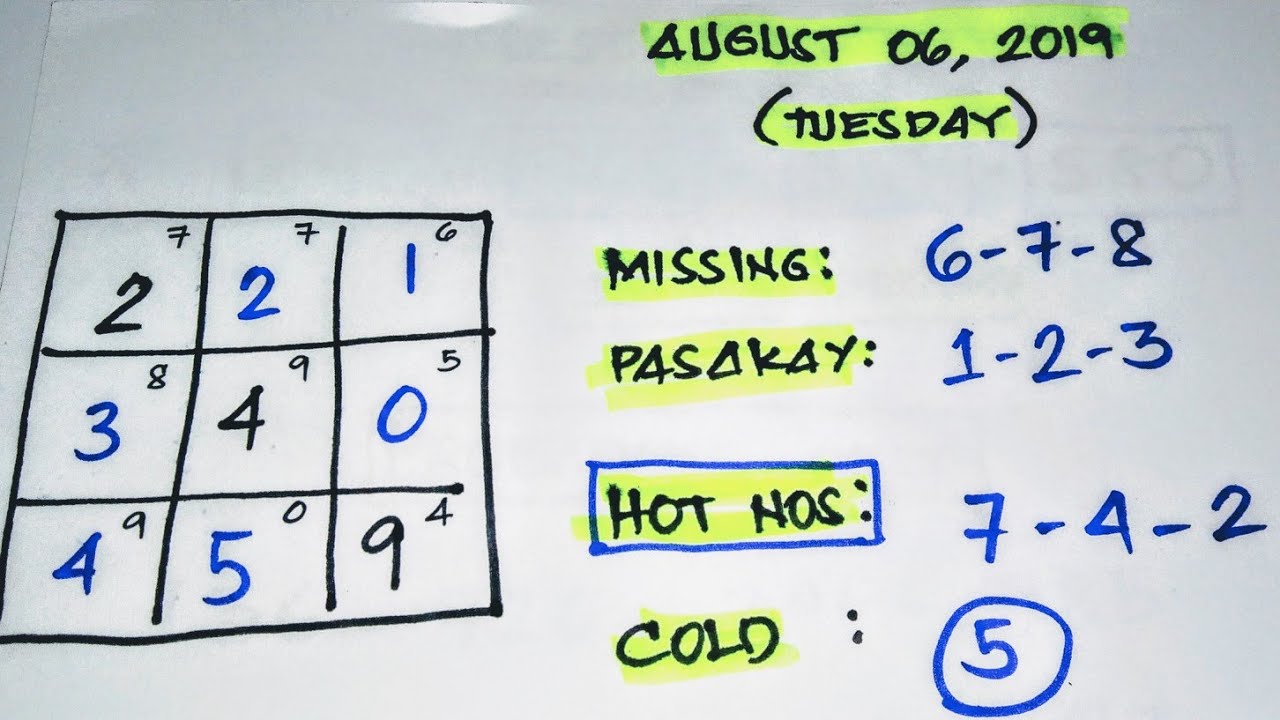 AUGUST 06, 2019
(TUESDAY)
7 7 6
2 2 1
8 9 5
3 4 0
9 0 4
4 5 9
MISSING: 6-7-8
PASAKAY: 1-2-3
HOT NOS: 7-4-2
COLD : 5